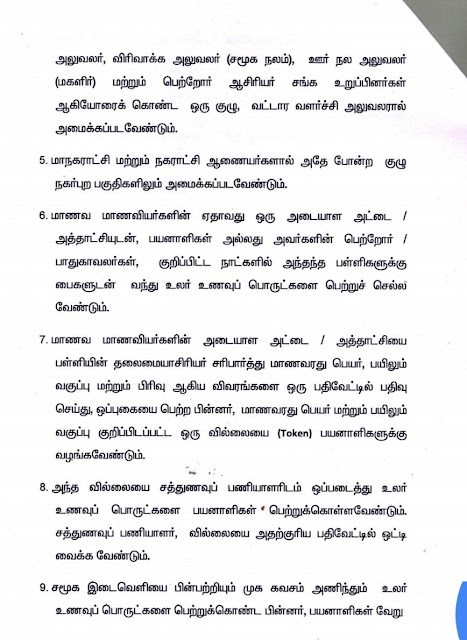 அலுவலர், விரிவாக்க அலுவலர் (சமூக நலம்), ஊர் நல அலுவலர்
(மகளிர்) மற்றும் பெற்றோர் ஆசிரியர் சங்க உறுப்பினர்கள்
ஆகியோரைக் கொண்ட ஒரு குழு, வட்டார வளர்ச்சி அலுவலரால்
அமைக்கப்படவேண்டும்.
5. மாநகராட்சி மற்றும் நகராட்சி ஆணையர்களால் அதே போன்ற குழு
நகர்புற பகுதிகளிலும் அமைக்கப்படவேண்டும்.
6. மாணவ மாணவியர்களின் ஏதாவது ஒரு அடையாள அட்டை /
அத்தாட்சியுடன், பயனாளிகள் அல்லது அவர்களின் பெற்றோர் /
பாதுகாவலர்கள், குறிப்பிட்ட நாட்களில் அந்தந்த பள்ளிகளுக்கு
பைகளுடன் வந்து உலர் உணவுப் பொருட்களை பெற்றுச் செல்ல
வேண்டும்.
7. மாணவ மாணவியர்களின் அடையாள அட்டை / அத்தாட்சியை
பள்ளியின் தலைமையாசிரியர் சரிபார்த்து மாணவரது பெயர், பயிலும்
வகுப்பு மற்றும் பிரிவு ஆகிய விவரங்களை ஒரு பதிவேட்டில் பதிவு
செய்து, ஒப்புகையை பெற்ற பின்னர், மாணவரது பெயர் மற்றும் பயிலும்
வகுப்பு குறிப்பிடப்பட்ட ஒரு வில்லையை (Token) பயனாளிகளுக்கு
வழங்கவேண்டும்.
8. அந்த வில்லையை சத்துணவுப் பணியாளரிடம் ஒப்படைத்து உலர்
உணவுப் பொருட்களை பயனாளிகள் பெற்றுக்கொள்ளவேண்டும்.
சத்துணவுப் பணியாளர், வில்லையை அதற்குரிய பதிவேட்டில் ஒட்டி
வைக்க வேண்டும்.
9. சமூக இடைவெளியை பின்பற்றியும் முக கவசம் அணிந்தும் உலர்
உணவுப் பொருட்களை பெற்றுக்கொண்ட பின்னர், பயனாளிகள் வேறு